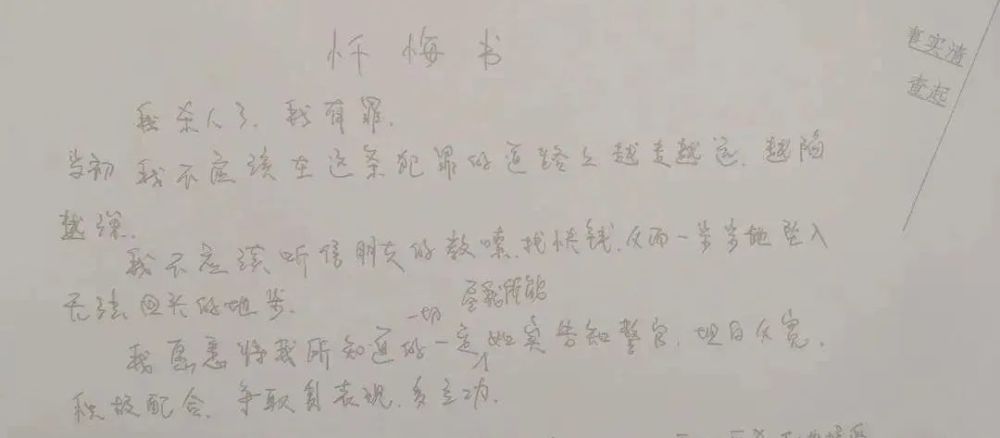 忏悔书
事实清
查起
我杀人了，我有罪.
当初我不应该在这条犯罪的道路上越走越远，越陷
越深.
我不应该听信朋友的教唆,找快钱,从而一步步地坠入
无法回头的地步.
一切 尽我所能
我愿意将我所知道的一定如实告知警官,坦白从宽.
积极配合，争取好表现,多立功.